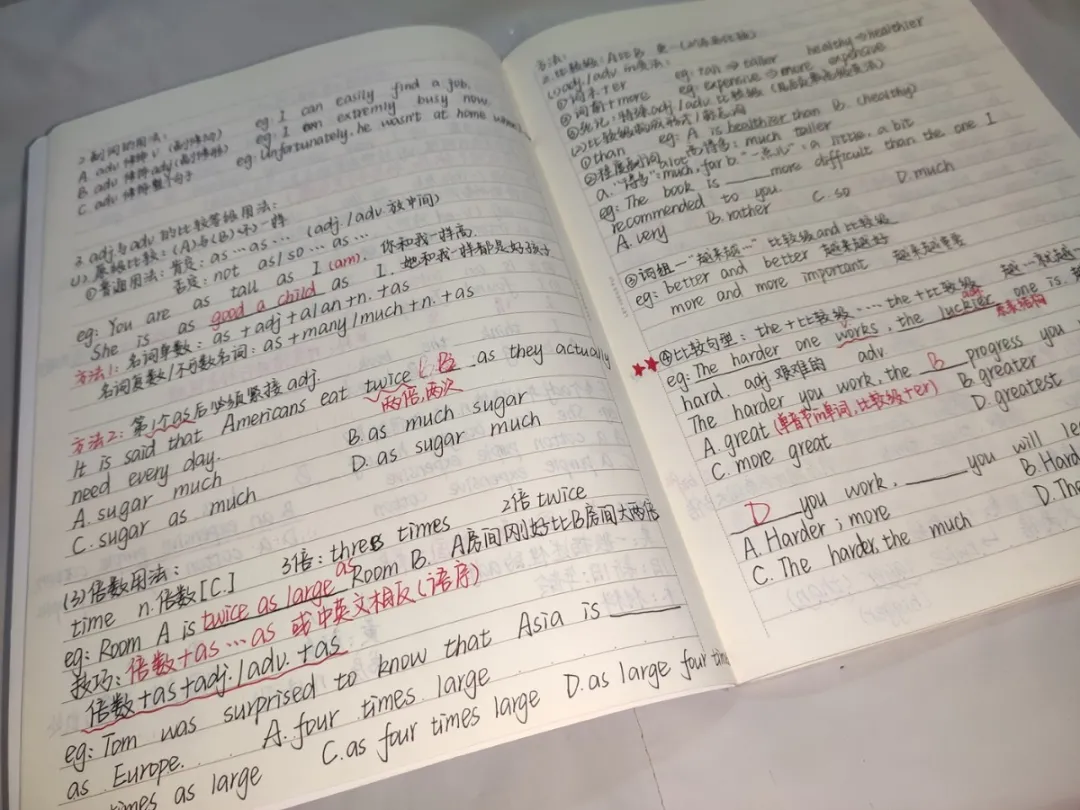 2.副词的用法:
A. adv 修饰 v. (副修动) eg: I can easily find a job.
B. adv 修饰 adj (副修形) eg: I am extremly busy now.
C. adv 修饰整个句子 eg: Unfortunately, he wasn't at home when
3. adj 与 adv 的比较等级用法:
(1). 原级比较: (A)与(B) 一样
①普通用法: 肯定: as ... as ... (adj./adv. 放中间)
否定: not as/so ... as ...
eg: You are as tall as I (am). 你和我一样高.
She is as good a child as I. 她和我一样都是好孩子
方法1: 名词单数: as + adj + a/an + n. + as
名词复数/不可数名词: as + many/much + n. + as
方法2: 第1个as后必须紧接adj.
It is said that Americans eat twice B as they actually
need every day. 两倍,两次
A. sugar much B. as much sugar
C. sugar as much D. as sugar much
(3) 倍数用法:
time n. 倍数 [C.] 3倍: three times 2倍 twice
eg: Room A is twice as large as Room B. A房间刚好比B房间大两倍
技巧: 倍数 + as ... as 或中英文相反 (语序)
倍数 + as + adj./adv. + as
eg: Tom was surprised to know that Asia is ____
as Europe. A. four times large
times as large C. as four times large D. as large four
方法:
2. 比较级: A比B 更一
(1) adj./adv. 的变法:
①词末 + er eg: tall → taller healthy → healthier
②词前 + more eg: expensive → more expensive
③死记: 特殊 adj./adv. 比较级
①than eg: A is healthier than B. (healthy)
②程度副词
a. "得多": much, far b. "一点儿": a little, a bit
eg: The book is ____ more difficult than the one I
recommended to you.
A. very B. rather C. so D. much
③词组一 "越来越…" 比较级 and 比较级
eg: better and better 越来越好
more and more important 越来越重要
④比较句型: the + 比较级 ..., the + 比较级 越一就越一
eg: The harder one works, the luckier one is. adj
hard. adj 艰难的 adv
The harder you work, the B progress you
A. great (单音节的单词, 比较级 + er) B. greater
C. more great D. greatest
D you work, ____ you will
A. Harder; more B. Hard
C. The harder, the much D. The